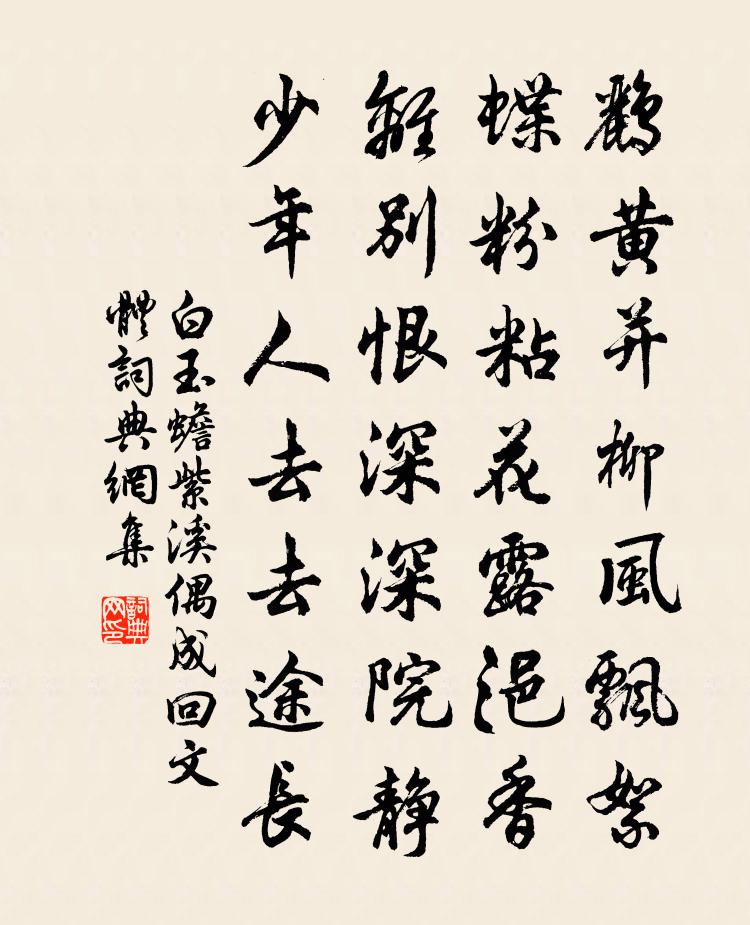 鸝黃并柳風飄絮
蝶粉粘花露浥香
離別恨深深院静
少年人去去途長
白玉蟾紫溪偶成回文
體詞典網集
詞典
网印